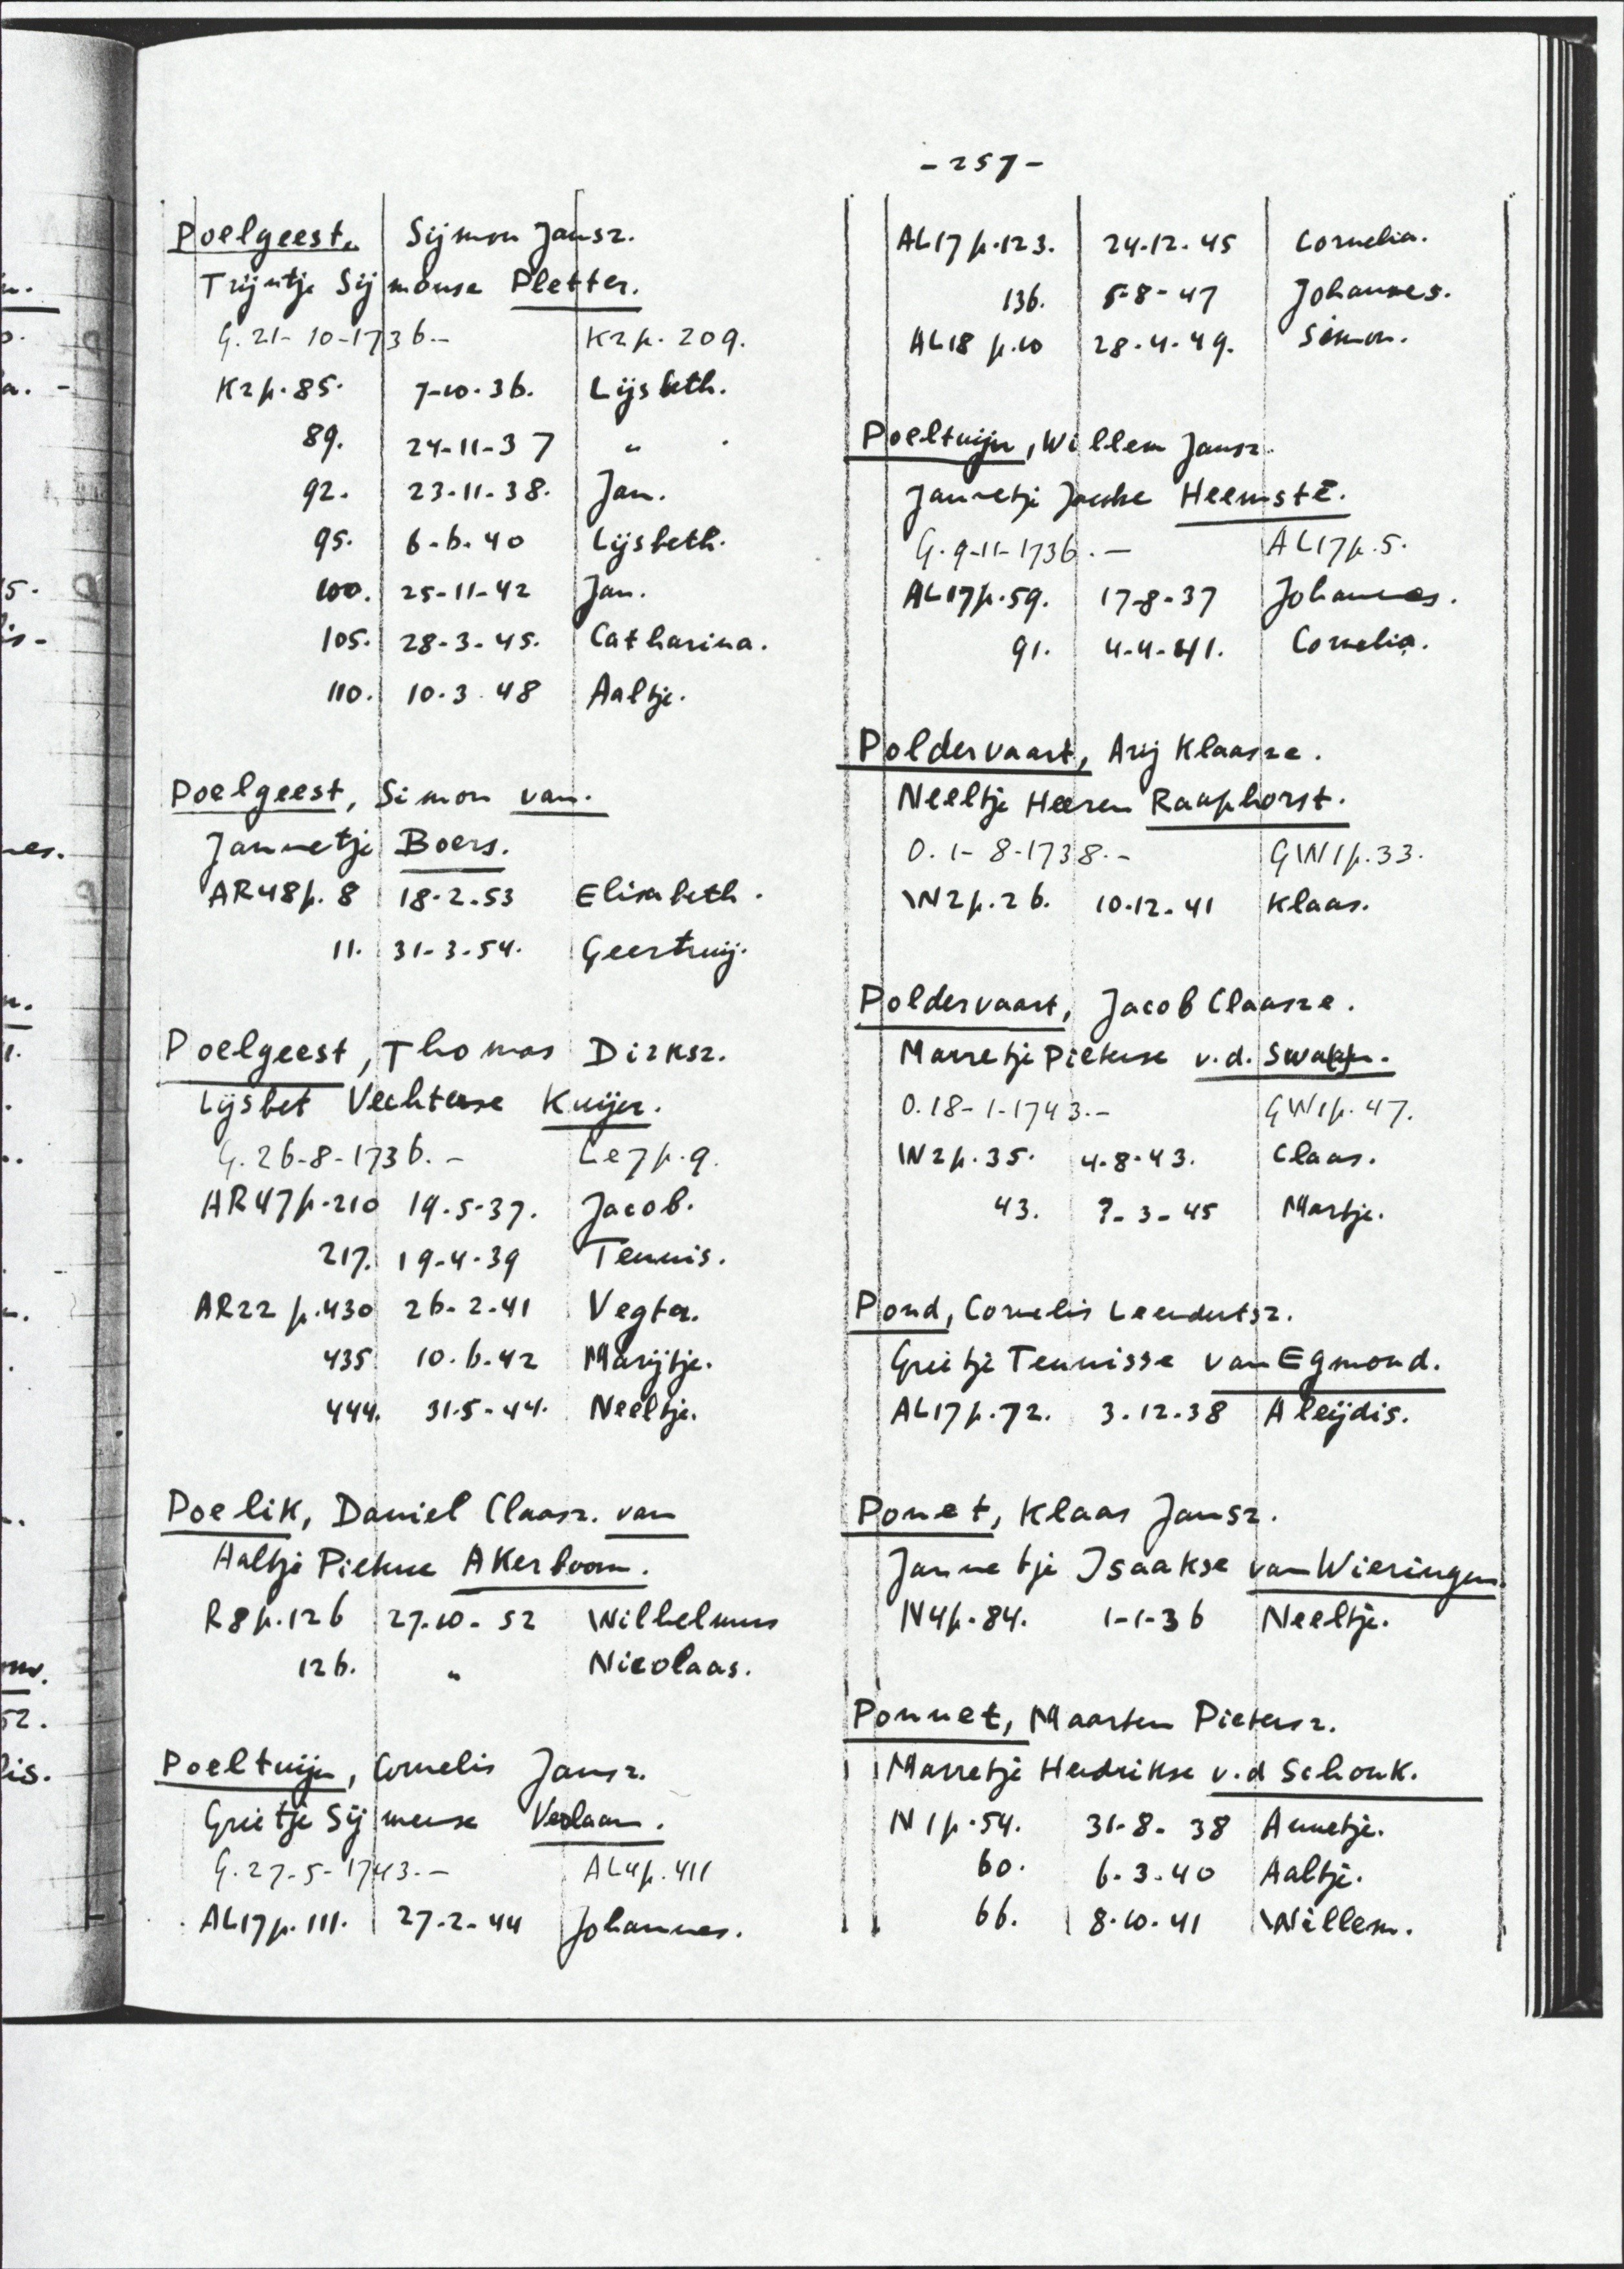 - 257 -
Poelgeest, Sijmon Jansz.
Trijntje Sijmonse Pletter.
G. 21-10-1736.- K2p. 209.
K2p. 85. 7-10-36. Lijsbeth.
89. 24-11-37 "
92. 23-11-38. Jan.
95. 6-6-40 Lijsbeth.
100. 25-11-42 Jan.
105. 28-3-45. Catharina.
110. 10-3-48 Aaltje.
Poelgeest, Simon van.
Jannetje Boers.
AR48p. 8 18-2-53 Elisabeth.
11. 31-3-54. Geertruij.
Poelgeest, Thomas Dirksz.
Lijsbet Vechterse Kuijer.
G. 26-8-1736.- Le7p.9.
AR47p.210 19-5-37. Jacob.
217. 19-4-39 Teunis.
AR22 p.430 26-2-41 Vegter.
435 10-6-42 Marijtje.
444. 31-5-44. Neeltje.
Poelik, Daniel Claasz. van
Aaltje Pieterse Akerboom.
R8p.126 27-10-52 Wilhelmus
126. " Nicolaas.
Poeltuijn, Cornelis Jansz.
Grietje Sijmense Verlaan.
G. 27-5-1743.- AL4p.411
AL17p.111. 27-2-44 Johannes.
AL17p.123. 24-12-45 Cornelia.
136. 5-8-47 Johannes.
AL18 p.10 28-4-49. Simon.
Poeltuijn, Willem Jansz.
Jannetje Jacobse Heemste.
G. 9-11-1736.- AL17p.5.
AL17p.59. 17-8-37 Johannes.
91. 4-4-41. Cornelia.
Poldervaart, Arij Klaasze.
Neeltje Heeren Raaphorst.
O. 1-8-1738.- GW1p.33.
W2p.26. 10-12-41 Klaas.
Poldervaart, Jacob Claasze.
Marretje Pieterse v.d. Swapp.
O. 18-1-1743.- GW1p.47.
W2p.35. 4-8-43. Claas.
43. ?-3-45 Martje.
Pond, Cornelis Leendertsz.
Grietje Teunisse van Egmond.
AL17p.72. 3-12-38 Aleijdis.
Ponet, Klaas Jansz.
Jannetje Isaakse van Wieringen.
N4p.84. 1-1-36 Neeltje.
Ponnet, Maarten Pietersz.
Marretje Hendrikse v.d Schonk.
N1p.54. 31-8-38 Annetje.
60. 6-3-40 Aaltje.
66. 8-10-41 Willem.